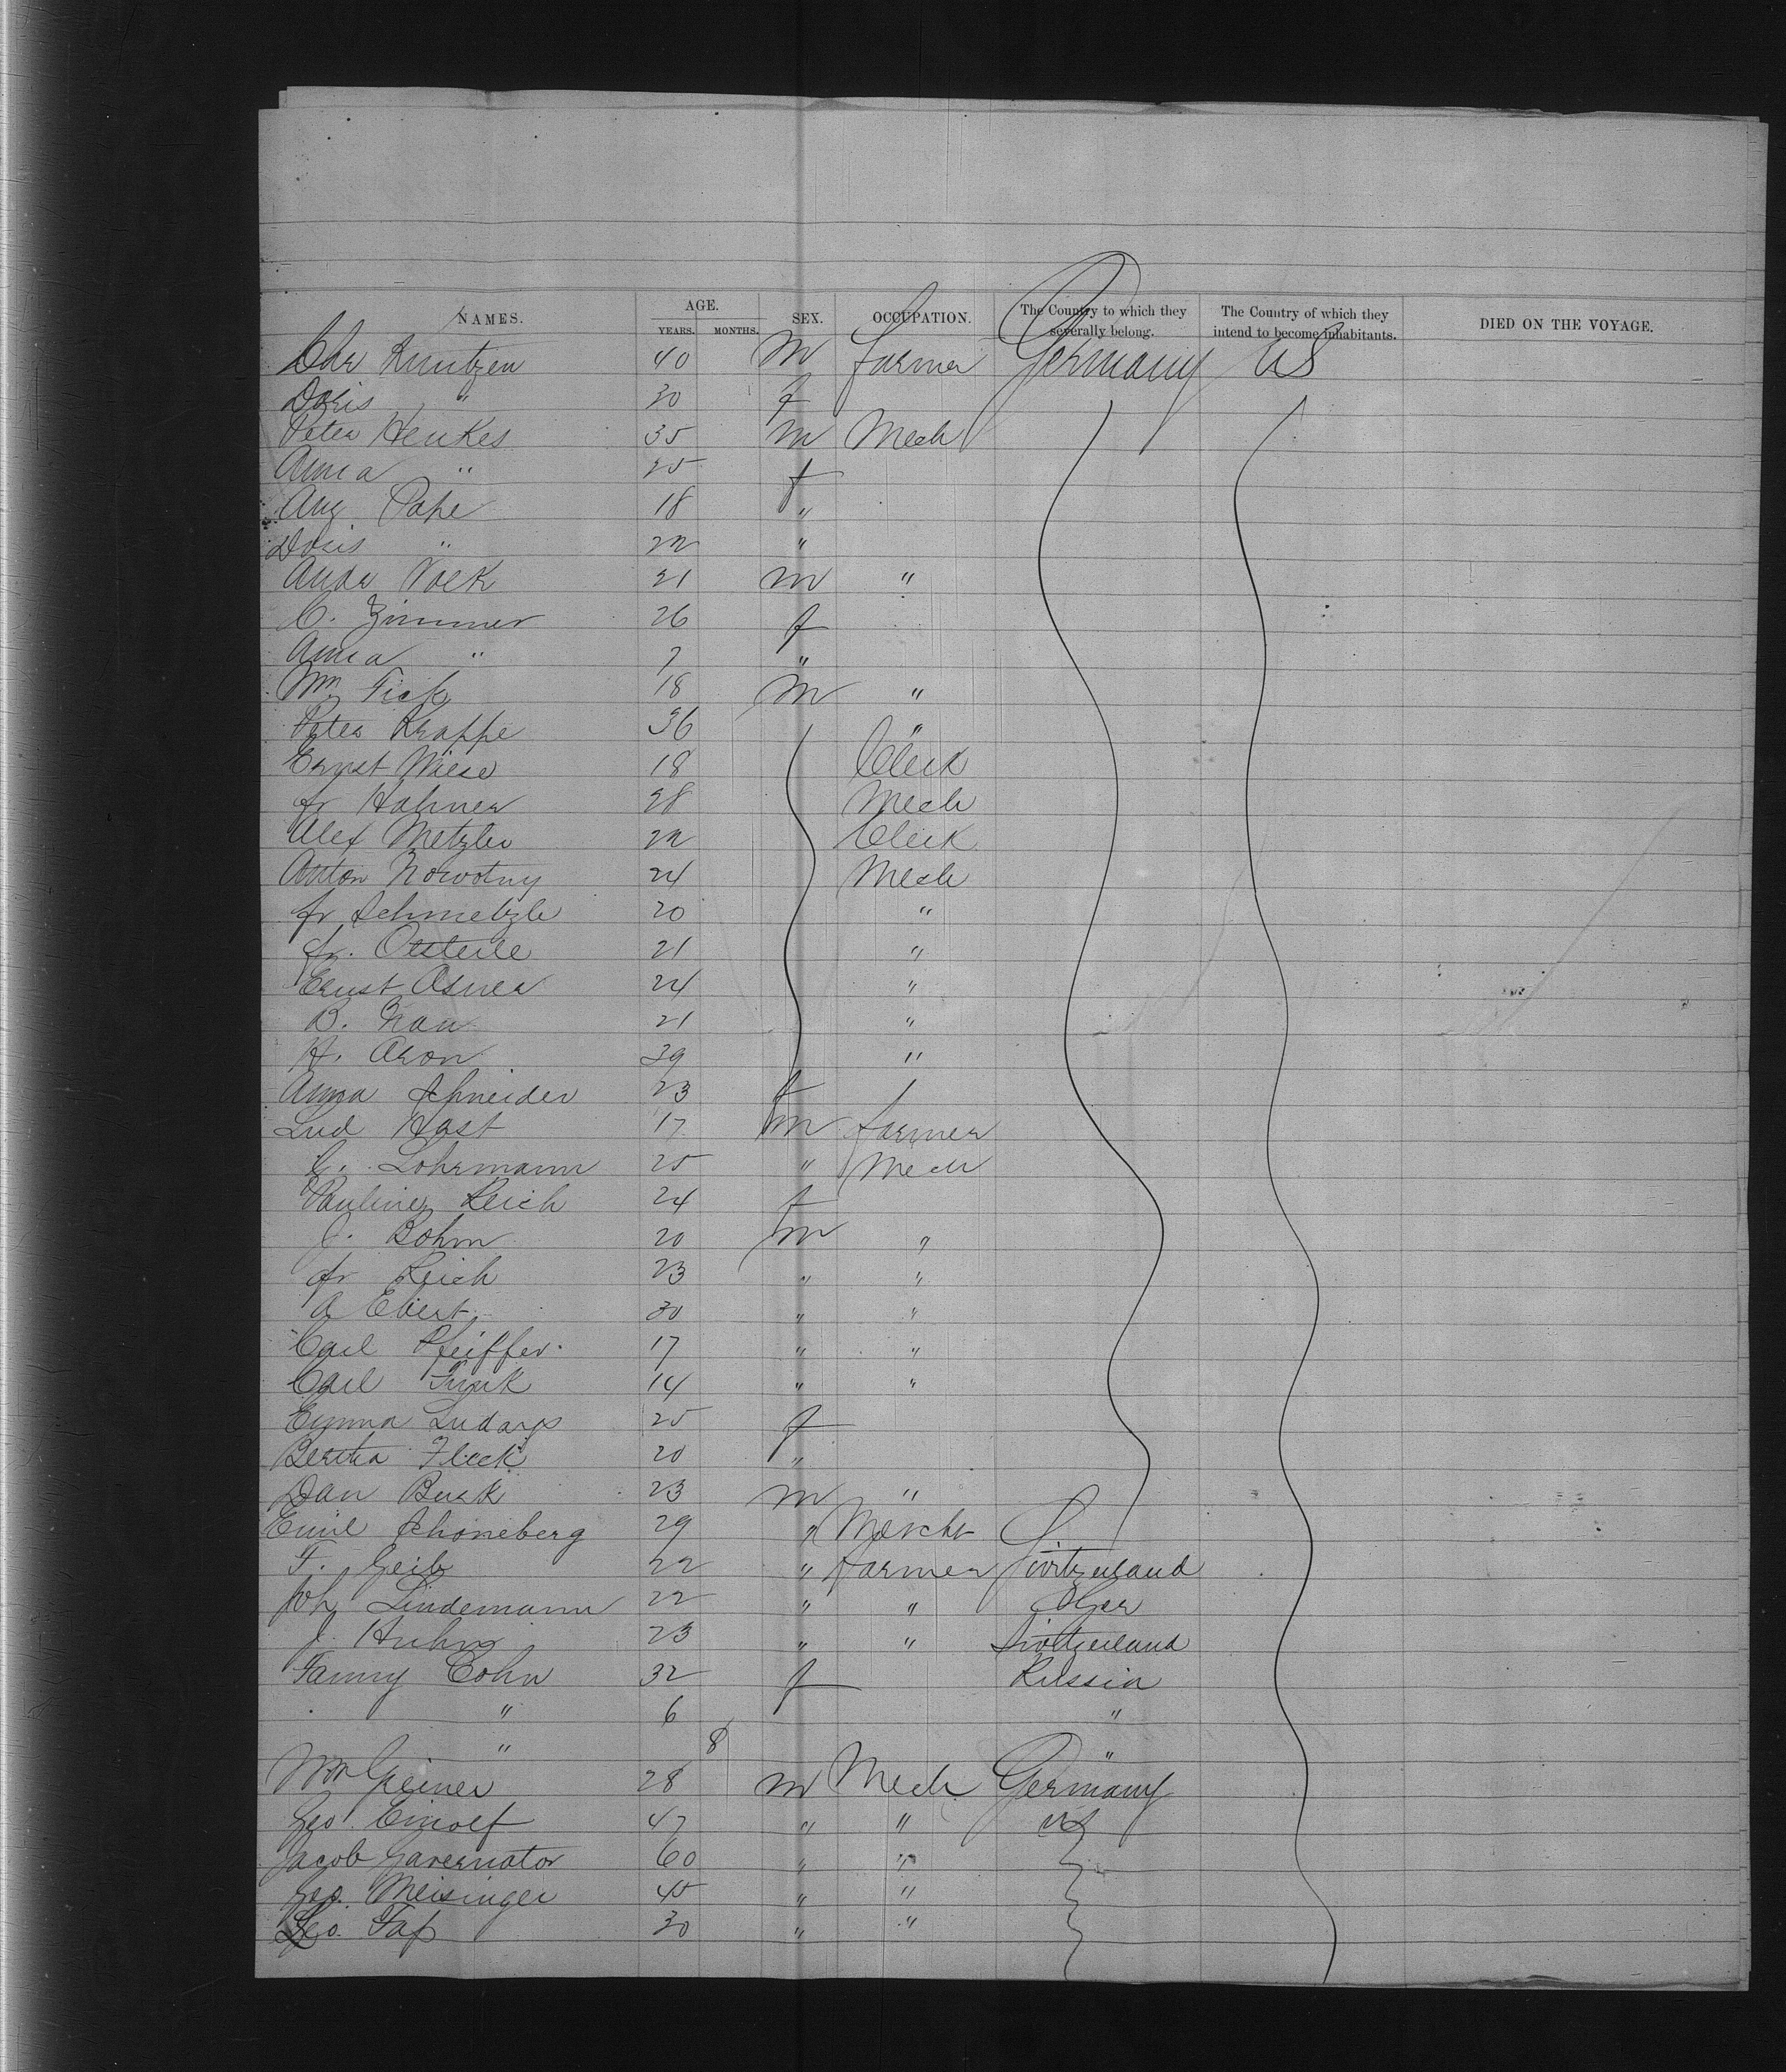 NAMES. AGE. YEARS. MONTHS. SEX. OCCUPATION. The Country to which they severally belong. The Country of which they intend to become inhabitants. DIED ON THE VOYAGE.
Chr Knutzen 40 m farmer Germany US
Doris " 30 f
Peter Henkes 35 m Mech
Anna " 25 f
Aug Pape 18 "
Doris " 22 "
Andr Volk 21 m "
C. Zimmer 26 f
Anna " 7 "
Wm Fick 18 m "
Peter Krappe 36 "
Ernst Wiese 18 Clerk
fr Hahner 28 Mech
Alex Metzler 22 Clerk
Anton Nowotny 24 Mech
fr Schmelzle 20 "
fr. Oesterle 21 "
Ernst Asner 24 "
B. Nau 21 "
H. Aron 39 "
Anna Schneider 23 f
Lud Hast 17 m farmer
C. Lohrmann 25 " Mech
Pauline Reich 24 f
J. Bohm 20 m "
fr Reich 23 " "
A Ebert 30 " "
Carl Pfeiffer 17 " "
Carl Funk 14 " "
Emma Ludargs 25 f
Bertha Fleck 20 "
Dan Burk 23 m "
Emil Schoneberg 29 " Mercht
F. Geib 22 " Farmer Switzerland
Joh Lindemann 22 " " Ger
J. Huhn 23 " " Switzerland
Fanny Cohn 32 f Russia
" 6 "
" 8 "
Wm Greiner 28 m Mech Germany
Geo. Einolf 47 " " US
Jacob Gavernator 60 " "
Geo. Meisinger 45 " "
Geo. 30 " "